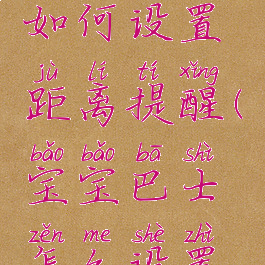 如何设置
jù lí tí xǐng
距离提醒(
bǎo bǎo bā shì
宝宝巴士
zěn me shè zhì
怎么设置